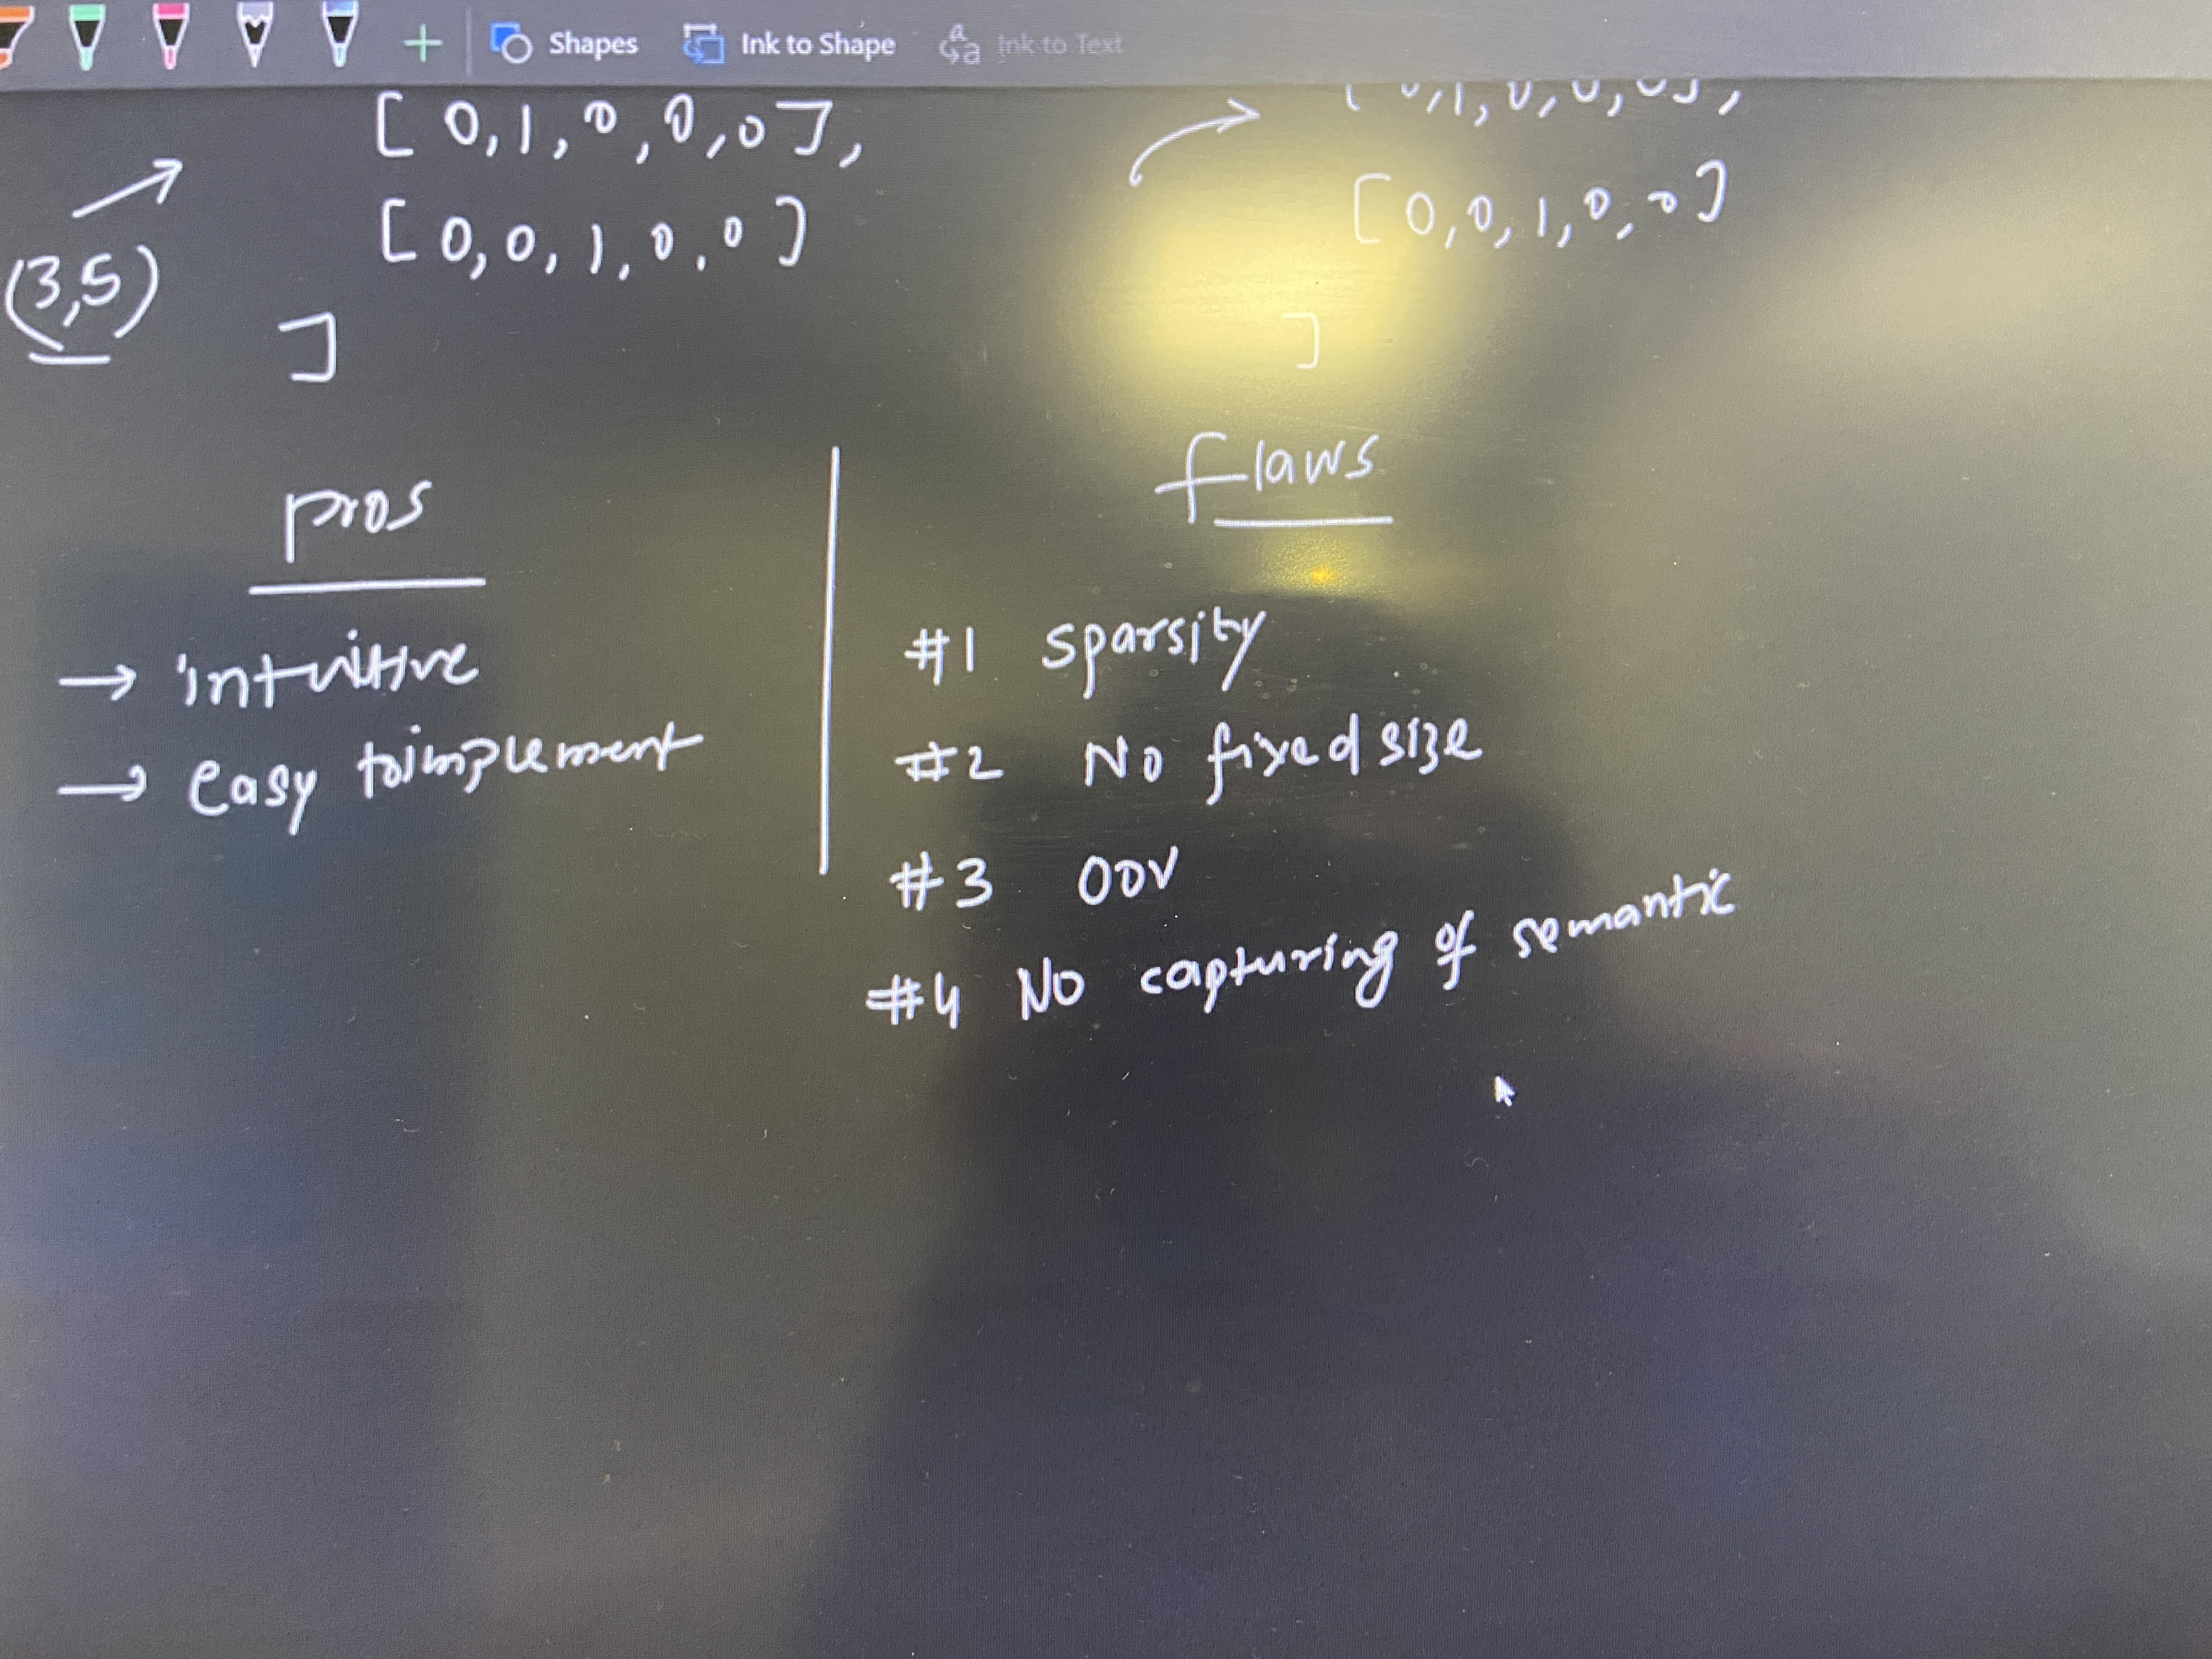 Shapes Ink to Shape Ink to Text
[ 0,1,0,0,0],
[0,0,1,0,0]
]
(3,5)
[0,0,1,0,0]
]
pros
→ intuitive
→ easy to implement
flaws
#1 sparsity
#2 No fixed size
#3 OOV
#4 No capturing of semantic